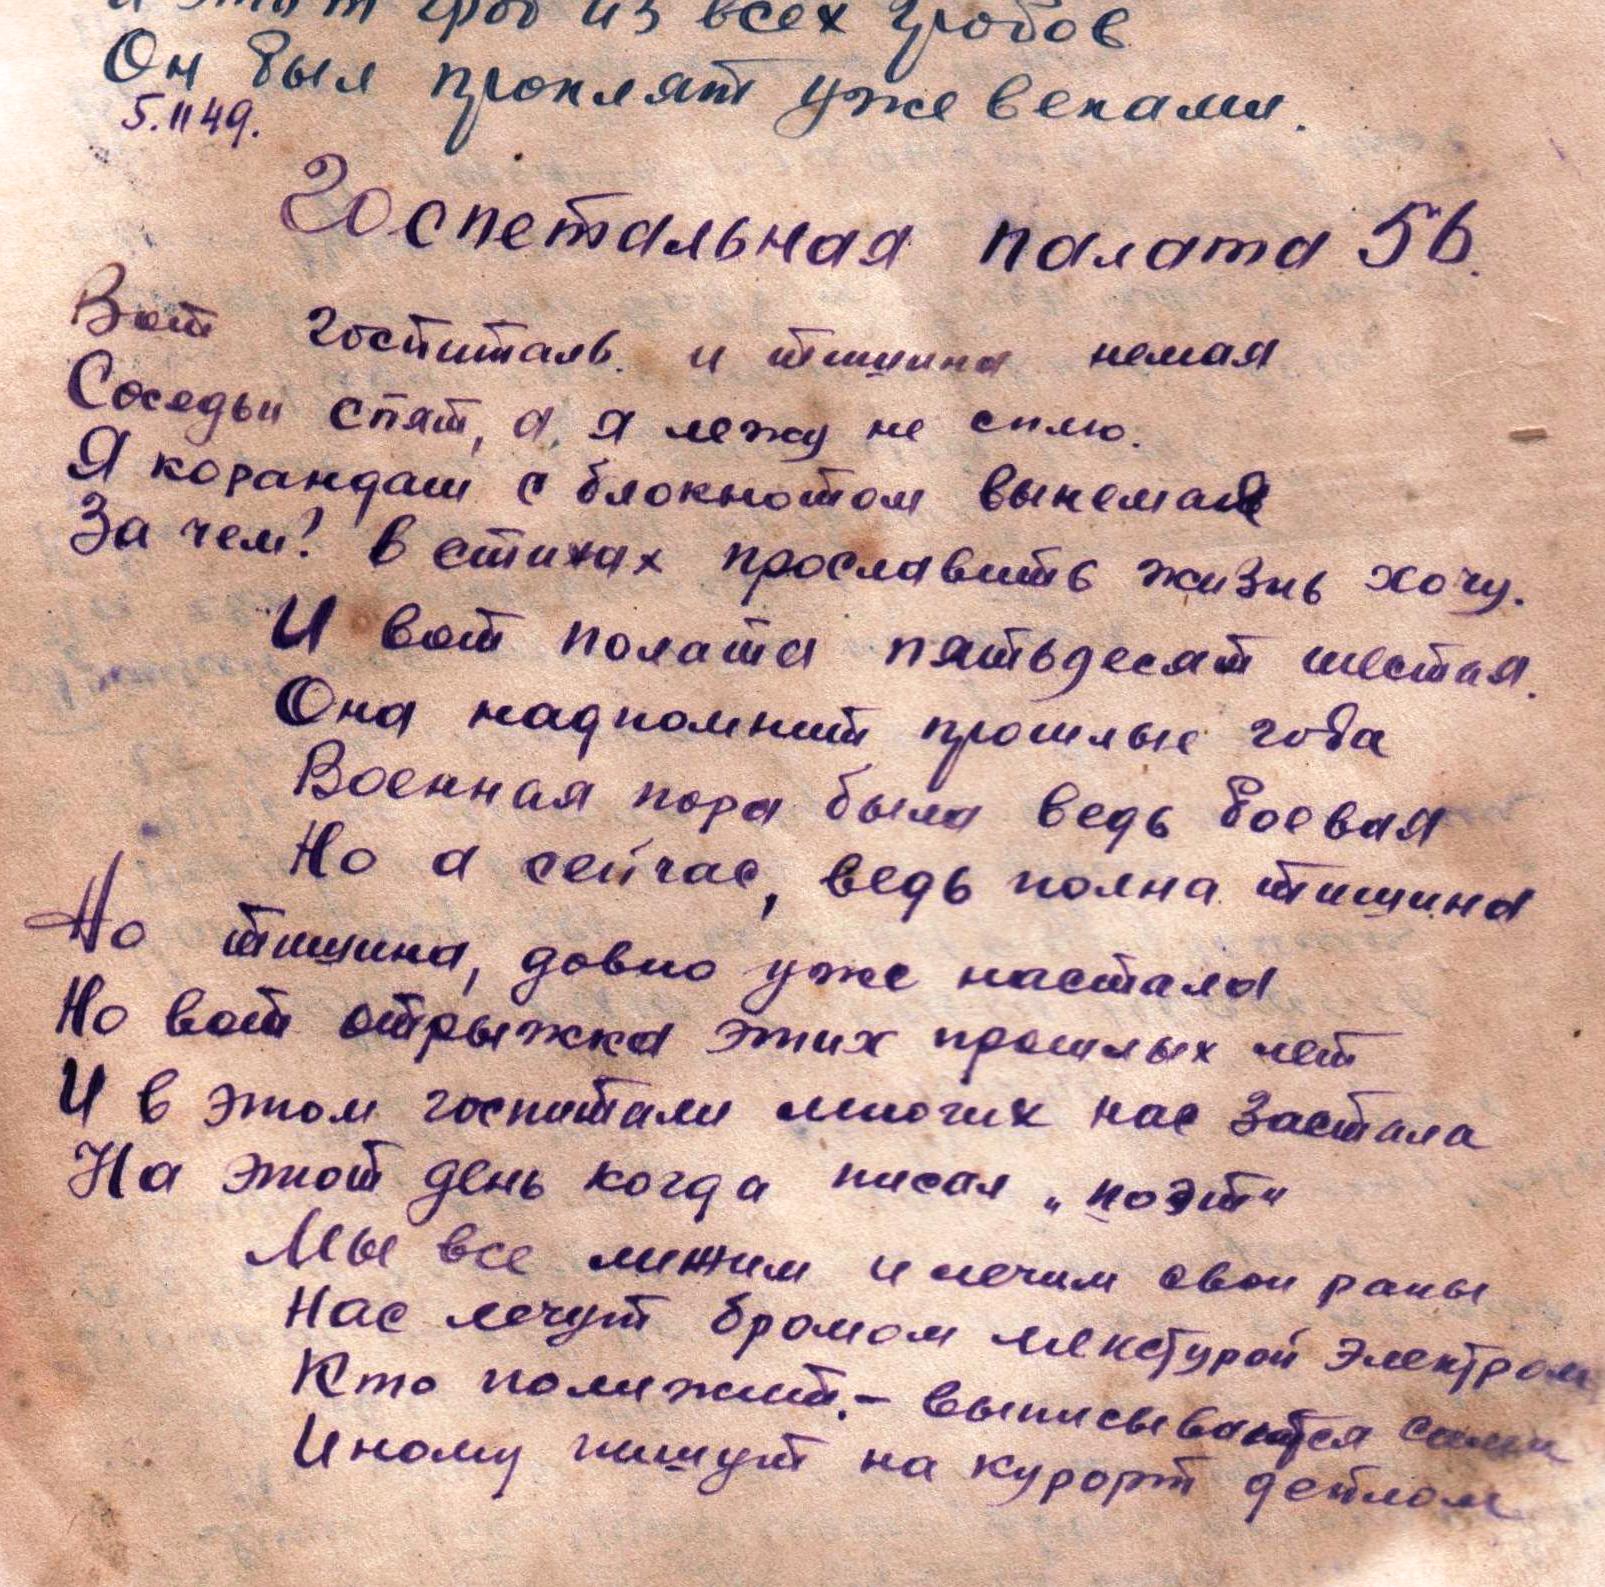 и этот гроб из всех гробов
Он был проклят уже веками.
5.II 49.
Госпетальная палата 56.
Вот госпиталь. и тишина немая
Соседьи спят, а я лежу не сплю.
Я корандаш с блокнотом вынемаю
За чем? в стихах прославить жизнь хочу.
И вот полата пятьдесят шестая.
Она надпомнит прошлые года
Военная пора была ведь боевая
Но а сейчас, ведь полна тишина
Но тишина, довно уже настала
Но вот отрыжка этих прошлых лет
И в этом госпитали многих нас застала
На этот день когда писал „поэт“
Мы все лижим и лечим свои раны
Нас лечут бромом мекстурой электром
Кто полижит. - выписываются сами
Иному пишут на курорт деплом